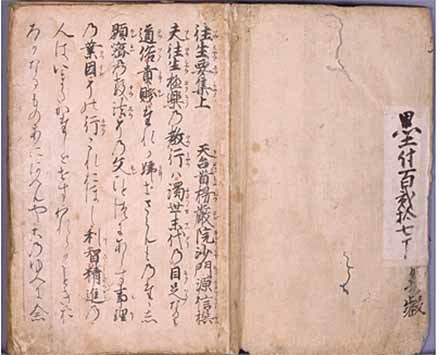 墨付百弐拾七丁
往生要集上 天台首楞嚴院沙門源信撰
夫往生極楽乃教行ハ濁世末代乃目足なり
道俗貴賤たれか帰せさらん
顕密乃教法その文ひとつにあらす事理
乃業因その行これおほし利智精進乃
人はいまたかたしとせす
かなるものあに んやこのゆへに念